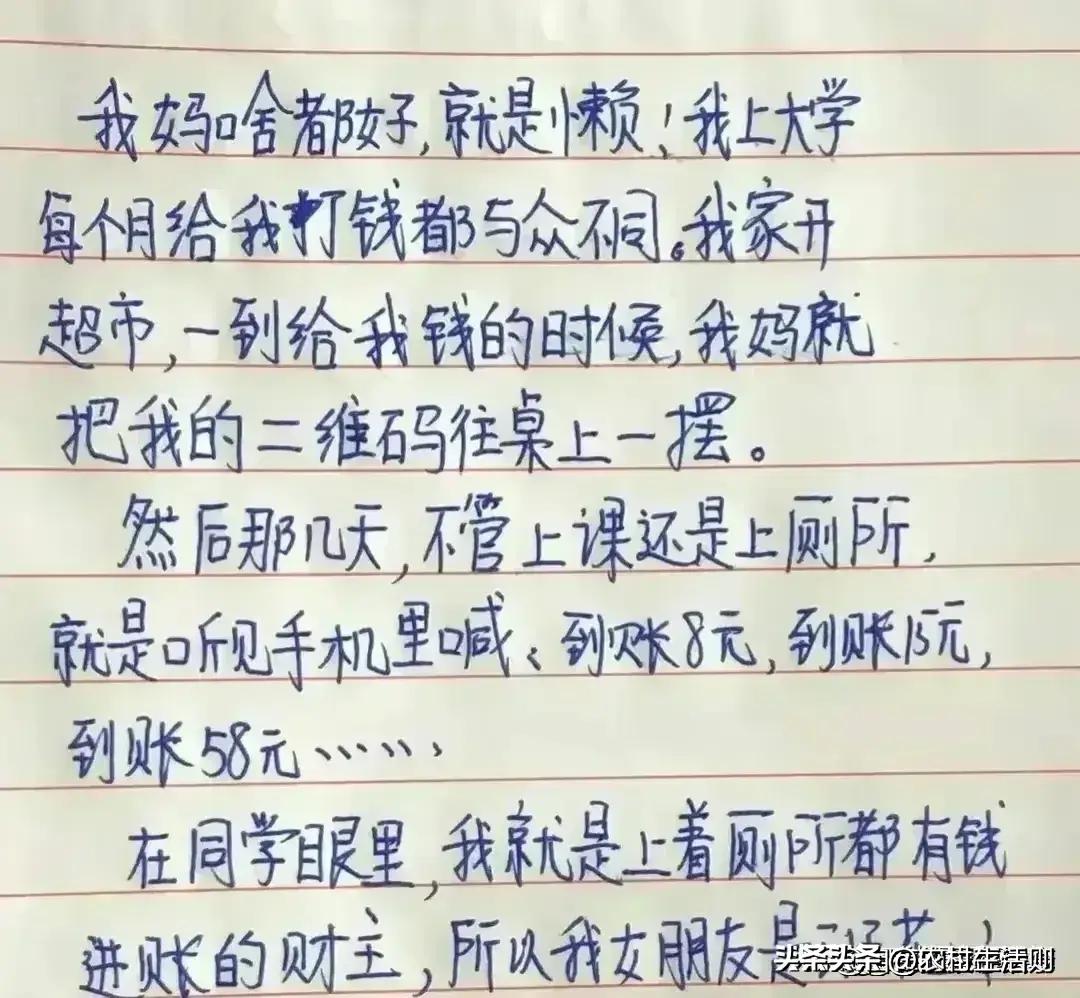 我妈啥都好，就是懒！我上大学
每个月给我打钱都与众不同。我家开
超市，一到给我钱的时候，我妈就
把我的二维码往桌上一摆。
然后那几天，不管上课还是上厕所，
就是听见手机里喊、到账8元，到账15元，
到账58元……
在同学眼里，我就是上着厕所都有钱
进账的财主，所以我女朋友是
头条 @农村生活则